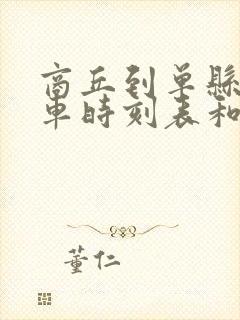 商丘到单县
车时刻表和
董仁